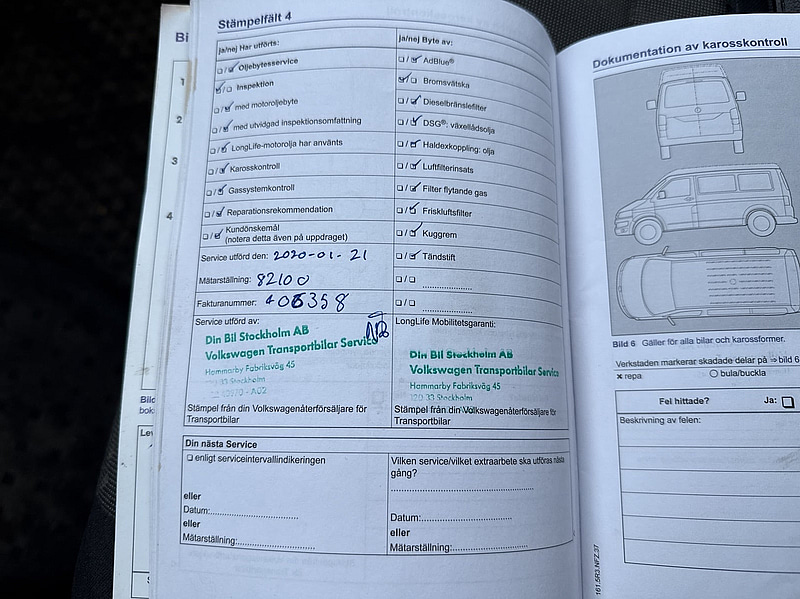 Stämpelfält 4
ja/nej Har utförts:
Oljebytesservice
Inspektion
med motoroljebyte
med utvidgad inspektionsomfattning
LongLife-motorolja har använts
Karosskontroll
Gassystemkontroll
Reparationsrekommendation
Kundönskemål
(notera detta även på uppdraget)
Service utförd den: 2020-01-21
Mätarställning: 82100
Fakturanummer: 406358
Service utförd av:
Din Bil Stockholm AB
Volkswagen Transportbilar Service
Hammarby Fabriksväg 45
Stockholm
Stämpel från din Volkswagenåterförsäljare för
Transportbilar
ja/nej Byte av:
AdBlue®
Bromsvätska
Dieselbränslefilter
DSG®: växellådsolja
Haldexkoppling: olja
Luftfilterinsats
Filter flytande gas
Friskluftsfilter
Kuggrem
Tändstift
LongLife Mobilitetsgaranti:
Din Bil Stockholm AB
Volkswagen Transportbilar Service
Hammarby Fabriksväg 45
120 33 Stockholm
Stämpel från din Volkswagenåterförsäljare för
Transportbilar
Din nästa Service
enligt serviceintervallindikeringen
eller
Datum:
eller
Mätarställning:
Vilken service/vilket extraarbete ska utföras nästa
gång?
Datum:
eller
Mätarställning:
Bi
1
2
3
4
Bild
bok
Lev
Dokumentation av karosskontroll
Bild 6 Gäller för alla bilar och karossformer.
Verkstaden markerar skadade delar på ⇒ bild 6
× repa
○ bula/buckla
Fel hittade?
Ja:
Beskrivning av felen:
161.5R3.NFZ.37